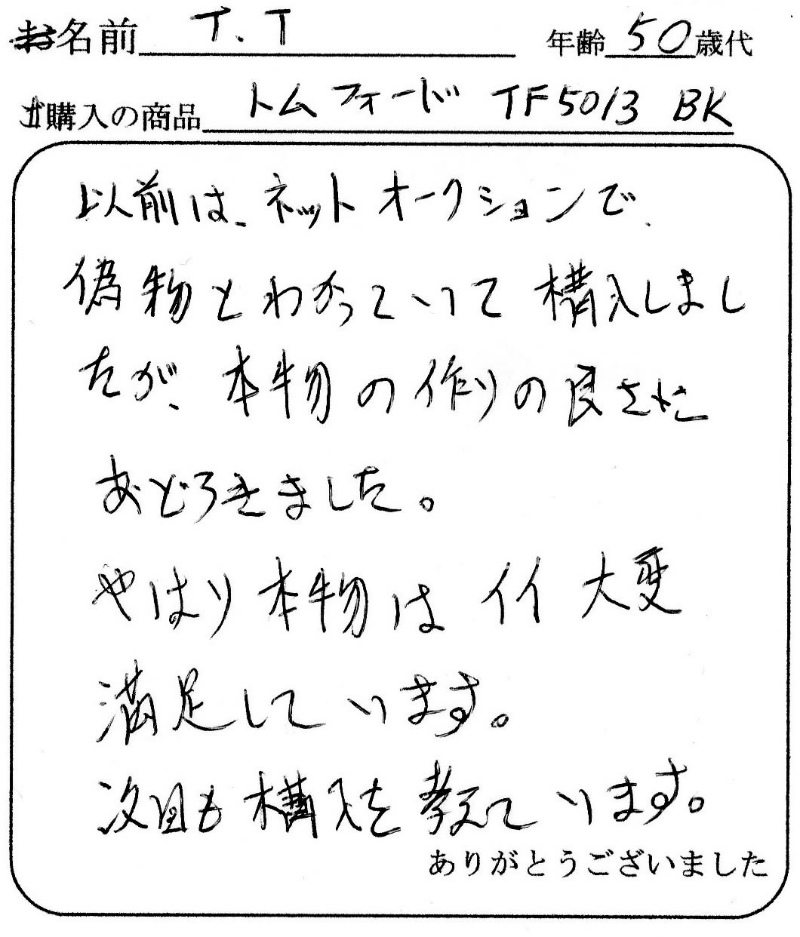 お名前 T.T 年齢 50 歳代
ご購入の商品 トムフォード TF5013 BK
以前は、ネットオークションで、
偽物とわかっていて構入しまし
たが、本物の作りの良さに
おどろきました。
やはり本物はイイ大変
満足しています。
次回も構入を考えています。
ありがとうございました